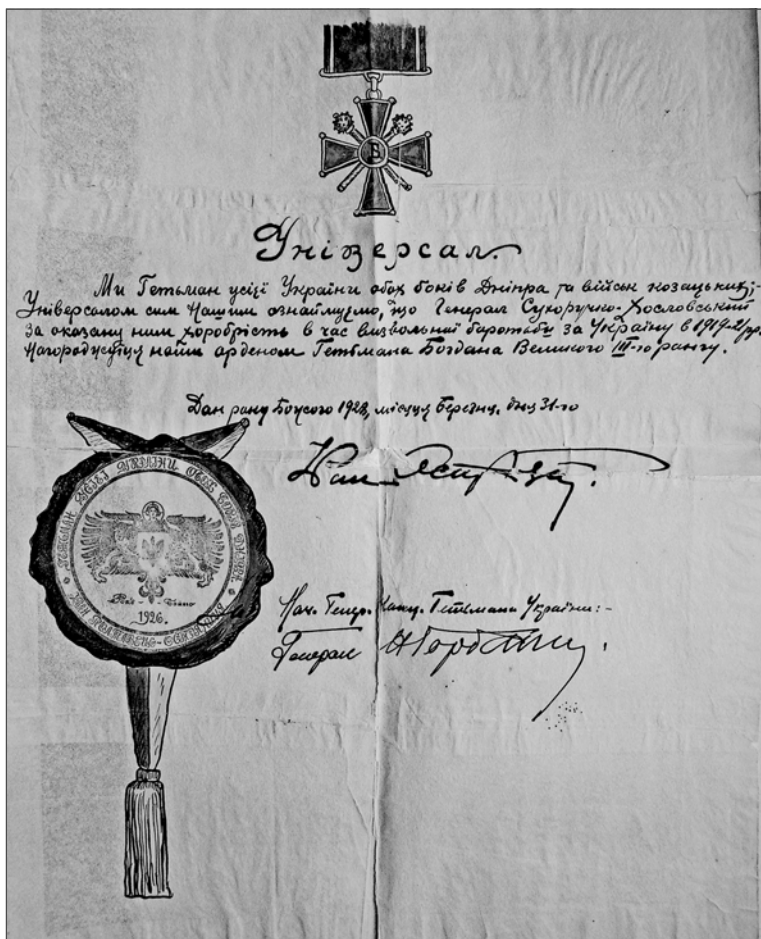 В
Універсал.
Ми Гетьман усієї України обох боків Дніпра та військ козацьких;-
Універсалом сим Нашим ознаймуємо, що Генерал Сухоручко-Хословський
за оказану ним хоробрість в час визвольної боротьби за Україну в 1919-21рр.
Нагороджується нами орденом Гетьмана Богдана Великого III-го рангу.
Дан року Божого 1928, місяця Березня, дня 31-го
Іван
Нач. Генер. Канц. Гетьмана України:-
Генерал
ГЕТЬМАН УСІЄЇ УКРАЇНИ ОБОХ БОКІВ ДНІПРА
1926.